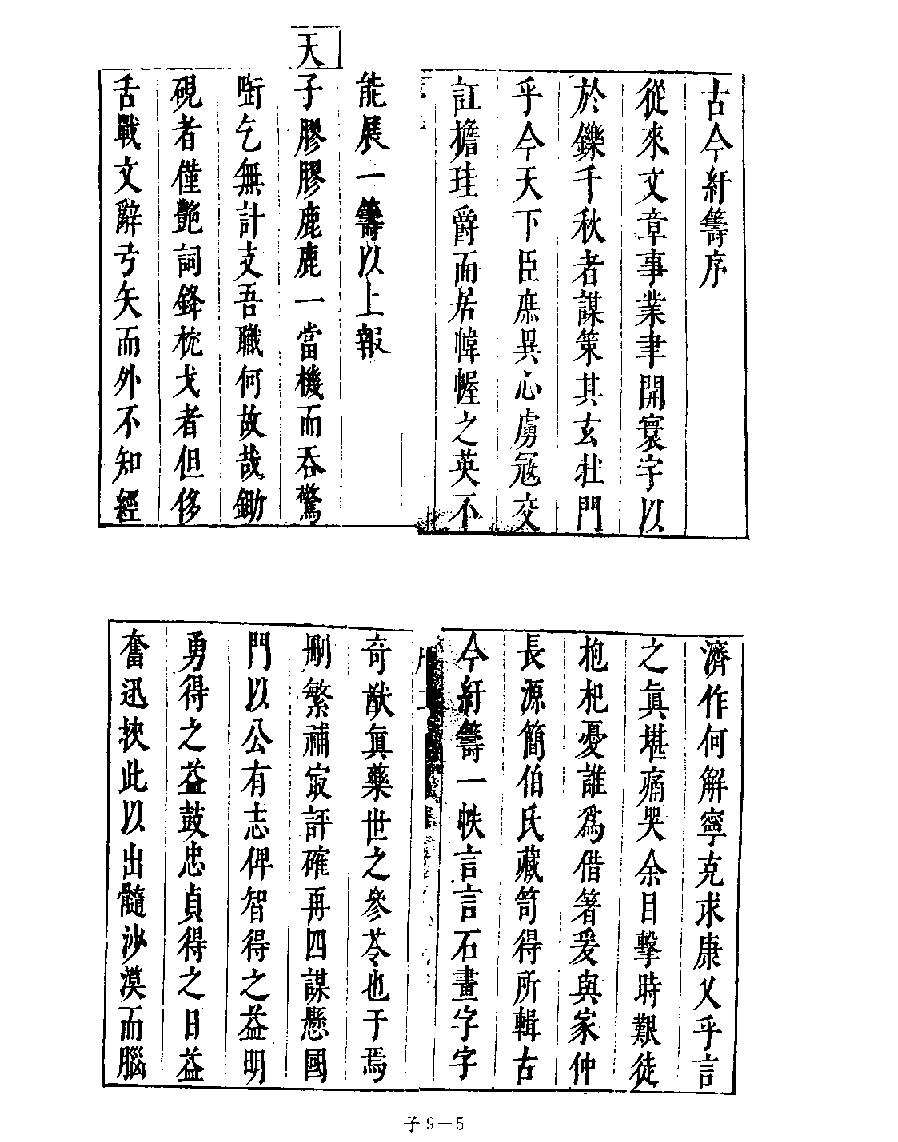 古今紆籌序
從來文章事業聿開寰宇以
於鑠千秋者謀策其玄壯門
乎今天下臣庶異心虜冦交
訌擔珪爵而居幃幄之英不
能展一籌以上報
天子膠膠鹿鹿一當機而吞驚
㫁乞無計支吾職何故哉鋤
硯者僅艷詞鋒枕戈者但侈
舌戰文辭弓矢而外不知經
濟作何解寧克求康乂乎言
之眞堪痛哭余目擊時艱徒
抱杞憂誰爲借箸爰與家仲
長源簡伯氏藏笥得所輯古
今紆籌一帙言言石畫字字
奇猷眞藥世之參苓也于焉
刪繁補㝡評確再四謀懸國
門以公有志俾智得之益明
勇得之益鼓忠貞得之日益
奮迅挾此以出髓沙漠而腦
子9—5